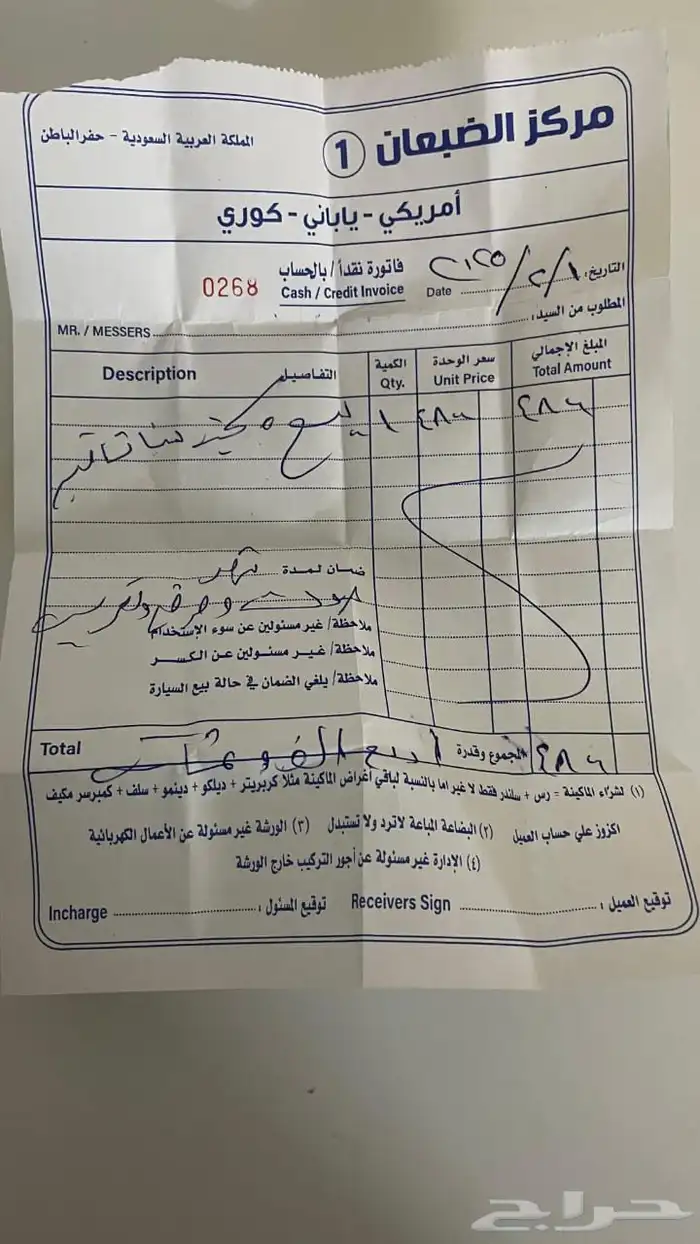 مركز الضبعان 1
المملكة العربية السعودية - حفرالباطن
أمريكي - ياباني - كوري
التاريخ: ٢٠٢٥/٢/١
Date
فاتورة نقداً / بالحساب
Cash / Credit Invoice
0268
المطلوب من السيد:
MR. / MESSERS
المبلغ الإجمالي
Total Amount
سعر الوحدة
Unit Price
الكمية
Qty.
التفاصيل
Description
بيع
١
ضمان لمدة شهر
ملاحظة/ غير مسئولين عن سوء الإستخدام
ملاحظة/ غير مسئولين عن الكسر
ملاحظة/ يلغي الضمان في حالة بيع السيارة
المجموع وقدرة
Total
(١) لشراء الماكينة = رس + سلندر فقط لا غير اما بالنسبة لباقي أغراض الماكينة مثلا كربريتر + ديلكو + دينمو + سلف + كمبرسر مكيف
اكزوز علي حساب العميل (٢) البضاعة المباعة لاترد ولا تستبدل (٣) الورشة غير مسئولة عن الأعمال الكهربائية
(٤) الإدارة غير مسئولة عن أجور التركيب خارج الورشة
توقيع العميل :
Receivers Sign
توقيع المسئول :
Incharge
حراج